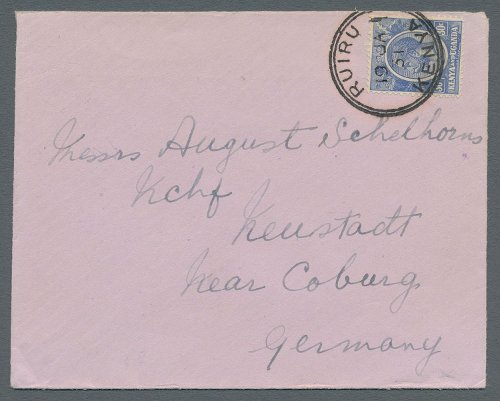 RUIRU
KENYA
KENYA AND UGANDA
Messrs August Schelhorns
Kchf
Neustadt
Near Coburg
Germany